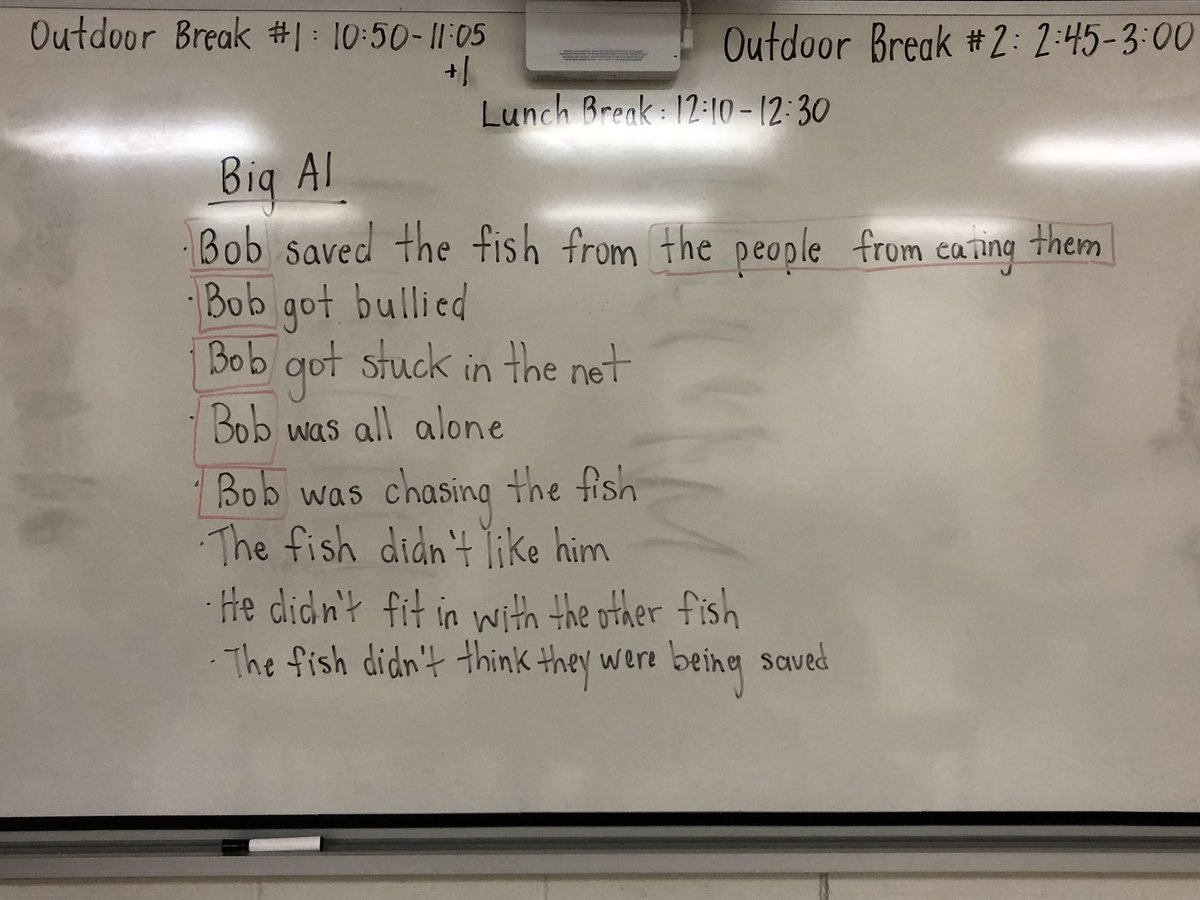 Outdoor Break #1: 10:50-11:05
+1
Outdoor Break #2: 2:45-3:00
Lunch Break: 12:10-12:30
Big Al
· Bob saved the fish from the people from eating them
· Bob got bullied
· Bob got stuck in the net
· Bob was all alone
· Bob was chasing the fish
· The fish didn't like him
· He didn't fit in with the other fish
· The fish didn't think they were being saved